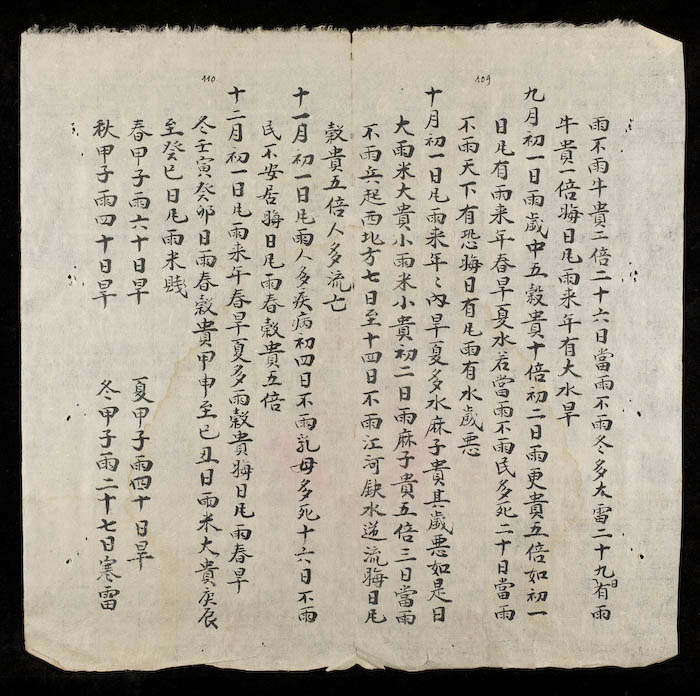 109
雨不雨牛貴三倍二十六日當雨不雨冬多大雷二十九日有雨
牛貴一倍晦日風雨来年有大水旱
九月初一日雨歲中五穀貴十倍初二日雨更貴五倍如初一
日風有雨来年春旱夏水若當雨不雨民多死二十日當雨
不雨天下有恐晦日有風雨有水歲悪
十月初一日風雨来年〻內旱夏多水麻子貴其歲悪如是日
大雨米大貴小雨米小貴初二日雨麻子貴五倍三日當雨
不雨兵起西北方七日至十四日不雨江河缺水逆流晦日風
110
穀貴五倍人多流亡
十一月初一日風雨人多疾病初四日不雨乳母多死十六日不雨
民不安居晦日風雨春穀貴五倍
十二月初一日風雨来年春旱夏多雨穀貴晦日風雨春旱
冬壬寅癸卯日雨春穀貴甲申至己丑日雨米大貴庚辰
至癸巳日風雨米賤
春甲子雨六十日旱 夏甲子雨四十日旱
秋甲子雨四十日旱 冬甲子雨二十七日寒雷